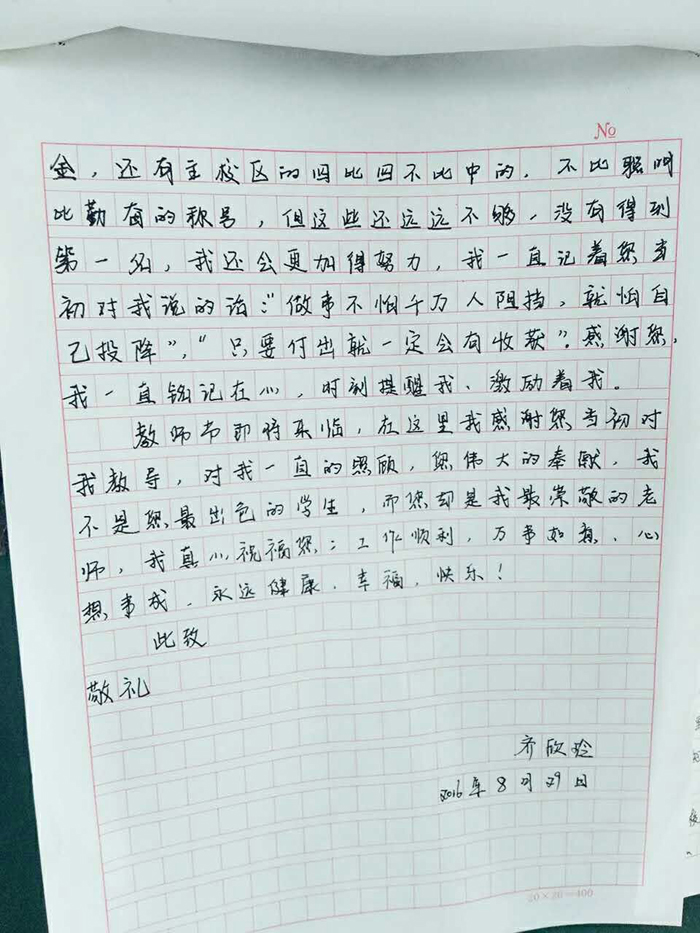 No
金，还有主校区的四比四不比中的，不比聪明
比勤奋的称号，但这些还远远不够，没有得到
第一名，我还会更加得努力，我一直记着您当
初对我说的话：“做事不怕千万人阻挡，就怕自
己投降”，“只要付出就一定会有收获”。感谢您，
我一直铭记在心，时刻提醒我、激励着我。
教师节即将来临，在这里我感谢您当初对
我教导，对我一直的照顾，您伟大的奉献，我
不是您最出色的学生，而您却是我最崇敬的老
师，我真心祝福您：工作顺利，万事如意、心
想事成、永远健康、幸福、快乐！
此致
敬礼
齐欣玲
2016年8月29日
20×20=400